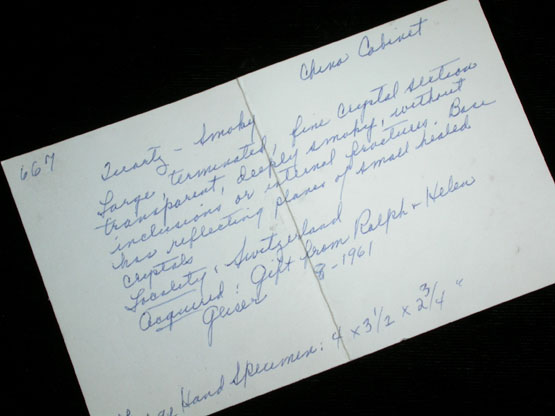 China Cabinet
667
Quartz - Smoky
Large, terminated, fine crystal section
transparent, deeply smoky, without
inclusions or internal fractures. Base
has reflecting planes of small healed
crystals
Locality: Switzerland
Acquired: Gift from Ralph + Helen
8-1961
Large Hand Specimen: 4 x 3 1/2 x 2 3/4 "